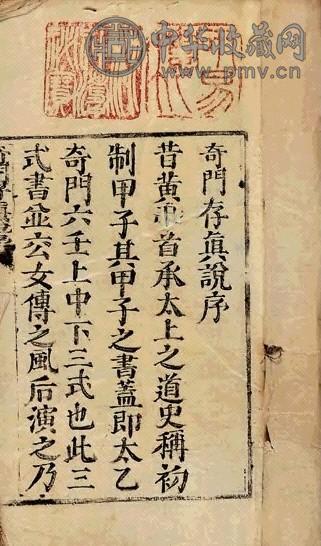 中华收藏网
www.pmv.cn
奇門存眞說序
昔黃帝首承太上之道史稱初
制甲子其甲子之書蓋即太乙
奇門六壬上中下三式也此三
式書並女傳之風后演之乃